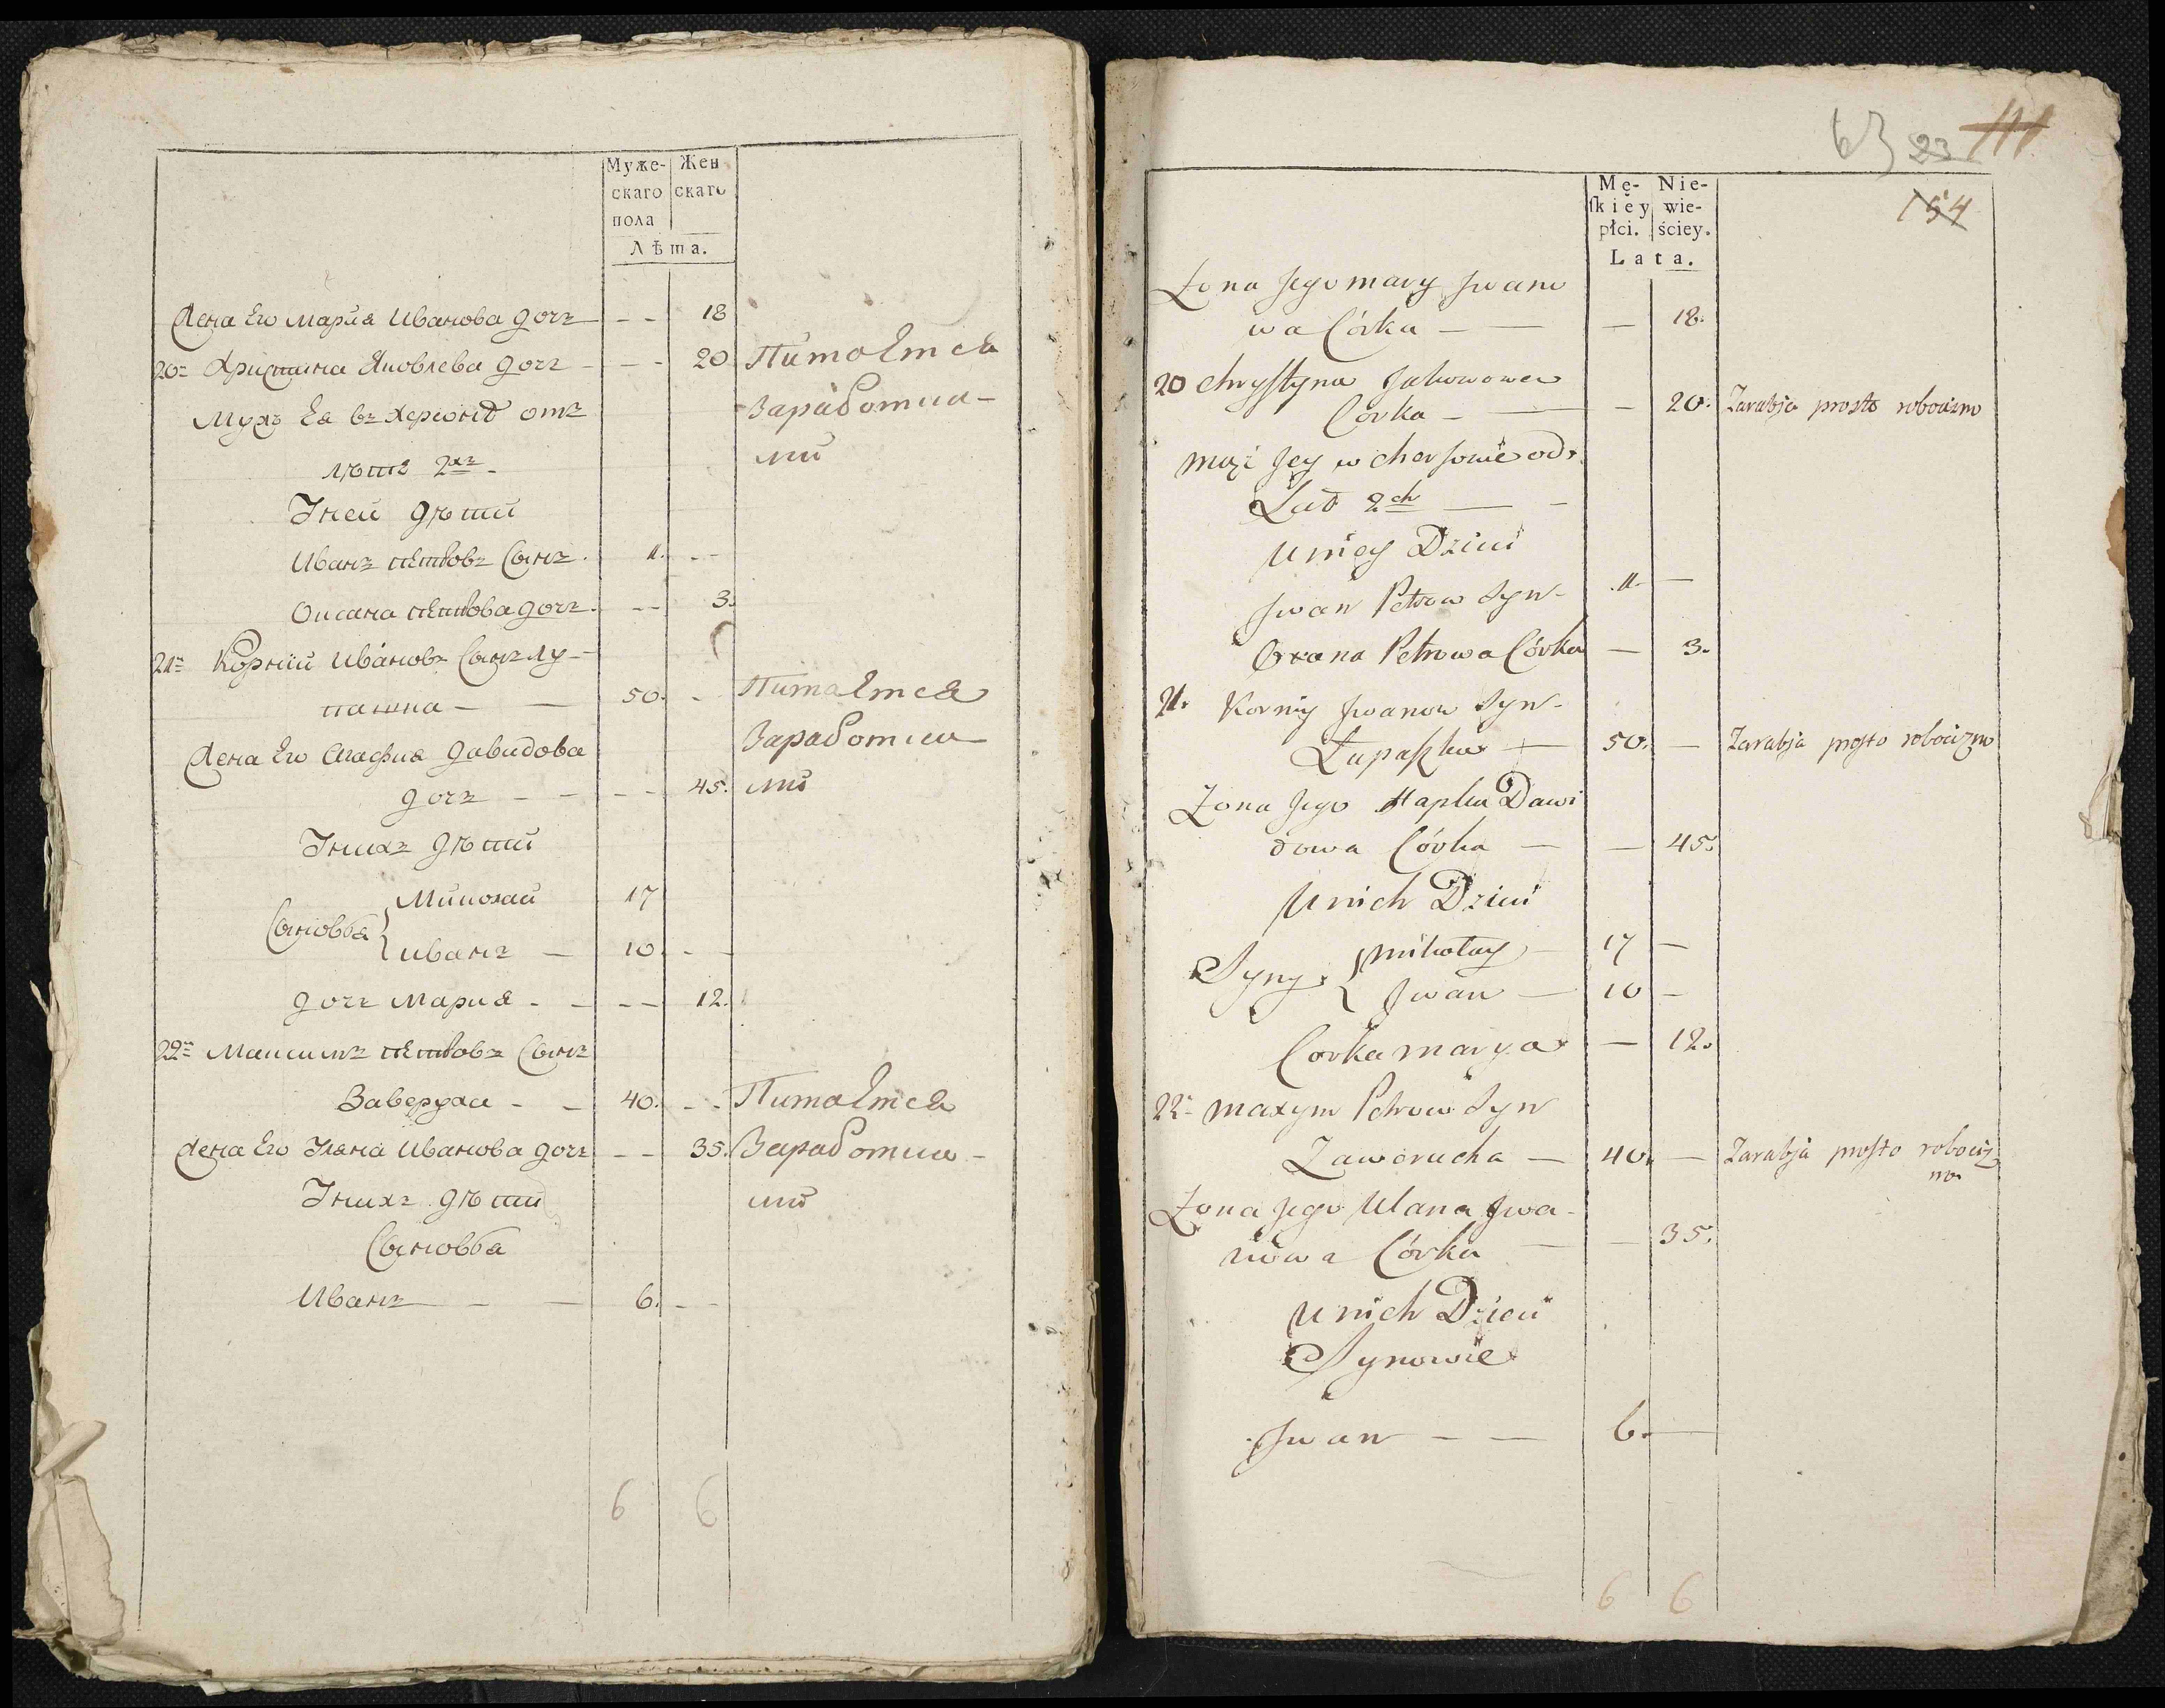 Муже-
скаго
пола
Жен
скаго
Лѣта.
Жена Его Мария Иванова дочъ — — 18
20ъ Христина Яковлева дочъ — — 20 Питаетса
Мужъ Ея въ Херсонѣ отъ Заработка-
лѣтъ 2хъ — ми
Унеи дѣти
Иванъ Петровъ Сынъ 11. — —
Оксана Петрова дочъ — — 3.
21ъ Корнии Ивановъ Сынъ Лу-
пашка — — 50. — Питаетса
Жена Его Агафия Давидова Заработка
дочъ — — — — 45. ми
Унихъ дѣти
Сыновъя { Миколаи 17
Иванъ — 10. — —
дочъ Мария — — — — 12.
22ъ Максимъ Петровъ Сынъ
Заверуха — — 40. — — Питаетса
Жена Его Уляна Иванова дочъ — — 35. Заработка-
Унихъ дѣти ми
Сыновъя
Иванъ — — — 6. — —
6 6
63 23 111
154
Mę-
ſkiéy
płci.
Nie-
wie-
ściey.
Lata.
Żona Jego Mary Jwano
wa Córka — — — 18.
20 Chrystyna Jakowowa
Córka — — — 20. Zarabja prosto robocizno
mąż Jey w Chersonie od
Lat 2ch — —
U niey Dzieci
Jwan Petrow Syn — 11. —
Oxana Petrowa Córka — 3.
21. Korniy Jwanow Syn —
Łupaszka — 50. — Zarabja prosto robocizno
Żona Jego Hapka Dawi
dowa Córka — — 45.
U nich Dzieci
Syny { Mikołay — 17 —
Jwan — 10 —
Corka Marya — 12.
22. Maxym Petrow Syn
Zawerucha — 40. — Zarabja prosto robociz
no
Żona Jego Ulana Jwa-
nowa Córka — — 35.
U nich Dzieci
Synowie
Jwan — — 6. —
6 6